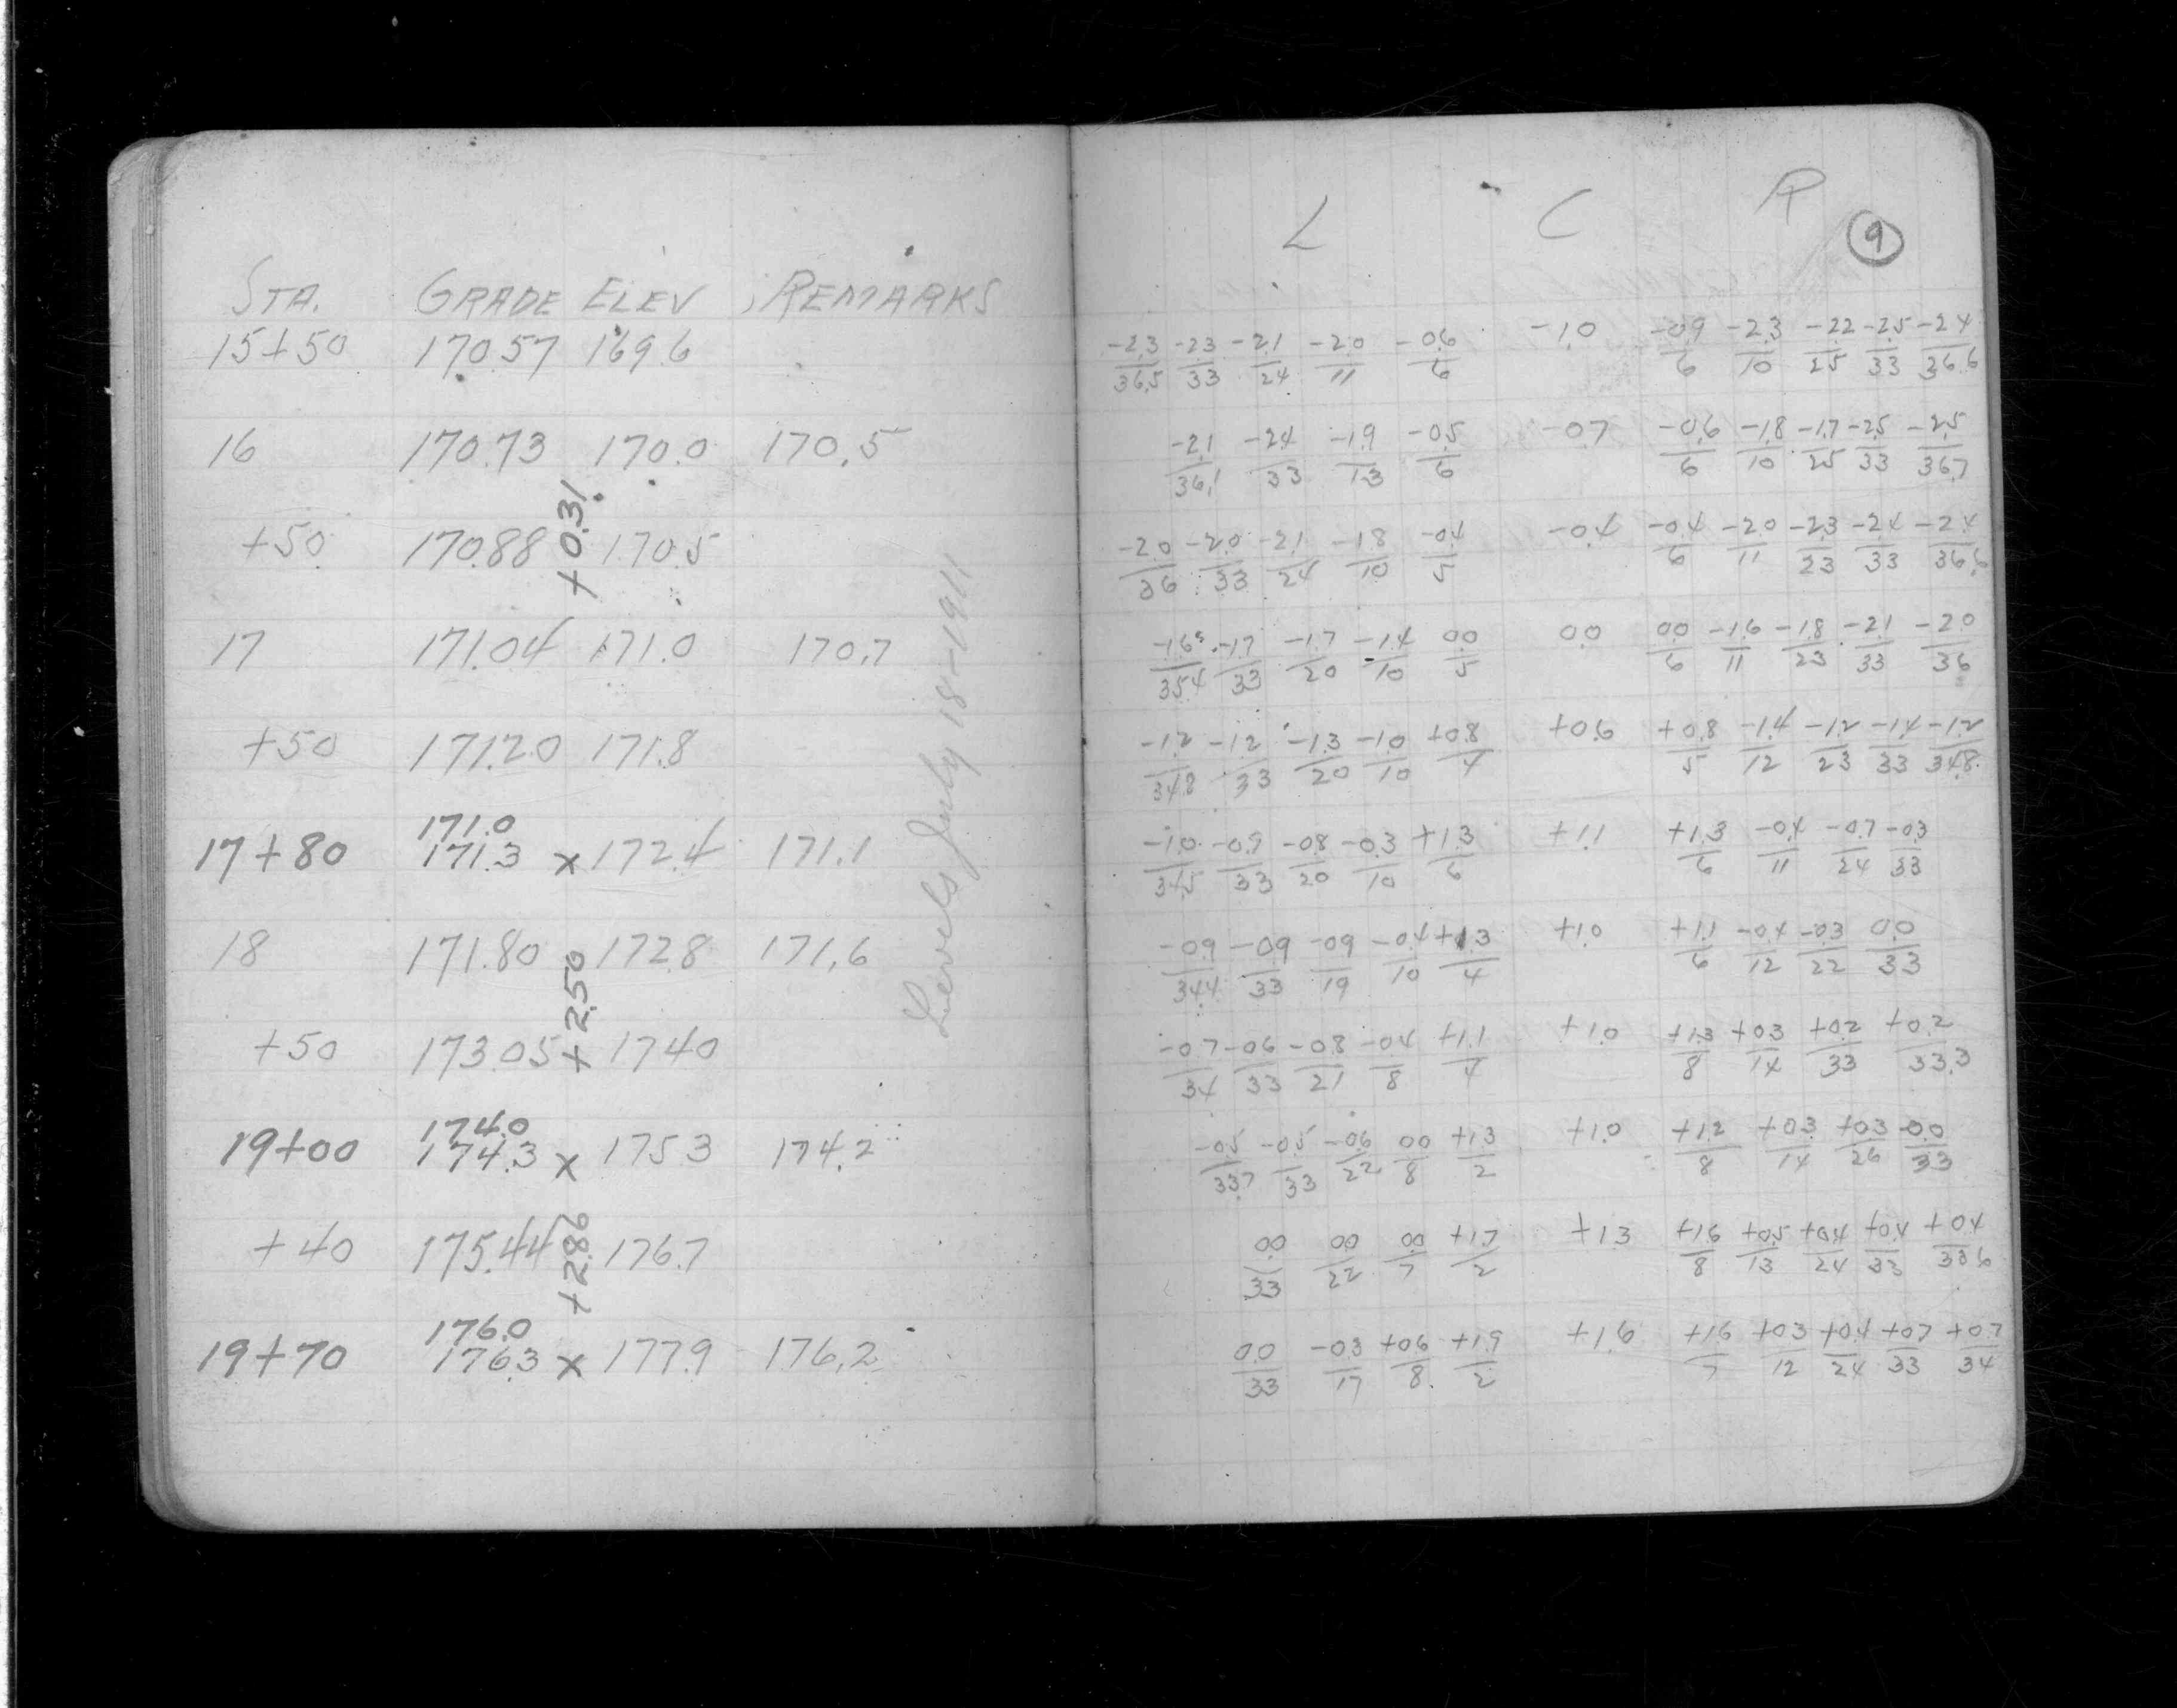 STA. GRADE ELEV REMARKS
15+50 170.57 169.6
16 170.73 170.0 170.5
+0.31
+50 170.88 170.5
17 171.04 171.0 170.7
+50 171.20 171.8
171.0
17+80 171.3 x 172.4 171.1
18 171.80 172.8 171.6
+2.50
+50 173.05 174.0
174.0
19+00 174.3 x 175.3 174.2
+40 175.44 176.7
+2.86
176.0
19+70 176.3 x 177.9 176.2
Levels July 18-1911
L C R
9
-2.3 -2.3 -2.1 -2.0 -0.6 -1.0 -0.9 -2.3 -2.2 -2.5 -2.4
36.5 33 24 11 6 6 10 25 33 36.6
-2.1 -2.4 -1.9 -0.5 -0.7 -0.6 -1.8 -1.7 -2.5 -2.5
36.1 33 13 6 6 10 25 33 36.7
-2.0 -2.0 -2.1 -1.8 -0.4 -0.4 -0.4 -2.0 -2.3 -2.4 -2.4
36 33 24 10 5 6 11 23 33 36.6
-1.6 -1.7 -1.7 -1.4 0.0 0.0 0.0 -1.6 -1.8 -2.1 -2.0
35.4 33 20 10 5 6 11 23 33 36
-1.2 -1.2 -1.3 -1.0 +0.8 +0.6 +0.8 -1.4 -1.2 -1.4 -1.2
34.8 33 20 10 4 5 12 23 33 34.8
-1.0 -0.9 -0.8 -0.3 +1.3 +1.1 +1.3 -0.4 -0.7 -0.3
34.5 33 20 10 6 6 11 24 33
-0.9 -0.9 -0.9 -0.4 +1.3 +1.0 +1.1 -0.4 -0.3 0.0
34.4 33 19 10 4 6 12 22 33
-0.7 -0.6 -0.8 -0.4 +1.1 +1.0 +1.3 +0.3 +0.2 +0.2
34 33 21 8 4 8 14 33 33.3
-0.5 -0.5 -0.6 0.0 +1.3 +1.0 +1.2 +0.3 +0.3 -0.0
33.7 33 22 8 2 8 14 26 33
0.0 0.0 0.0 +1.7 +1.3 +1.6 +0.5 +0.4 +0.4 +0.4
33 22 7 2 8 13 24 33 33.6
0.0 -0.3 +0.6 +1.9 +1.6 +1.6 +0.3 +0.4 +0.7 +0.7
33 17 8 2 7 12 24 33 34